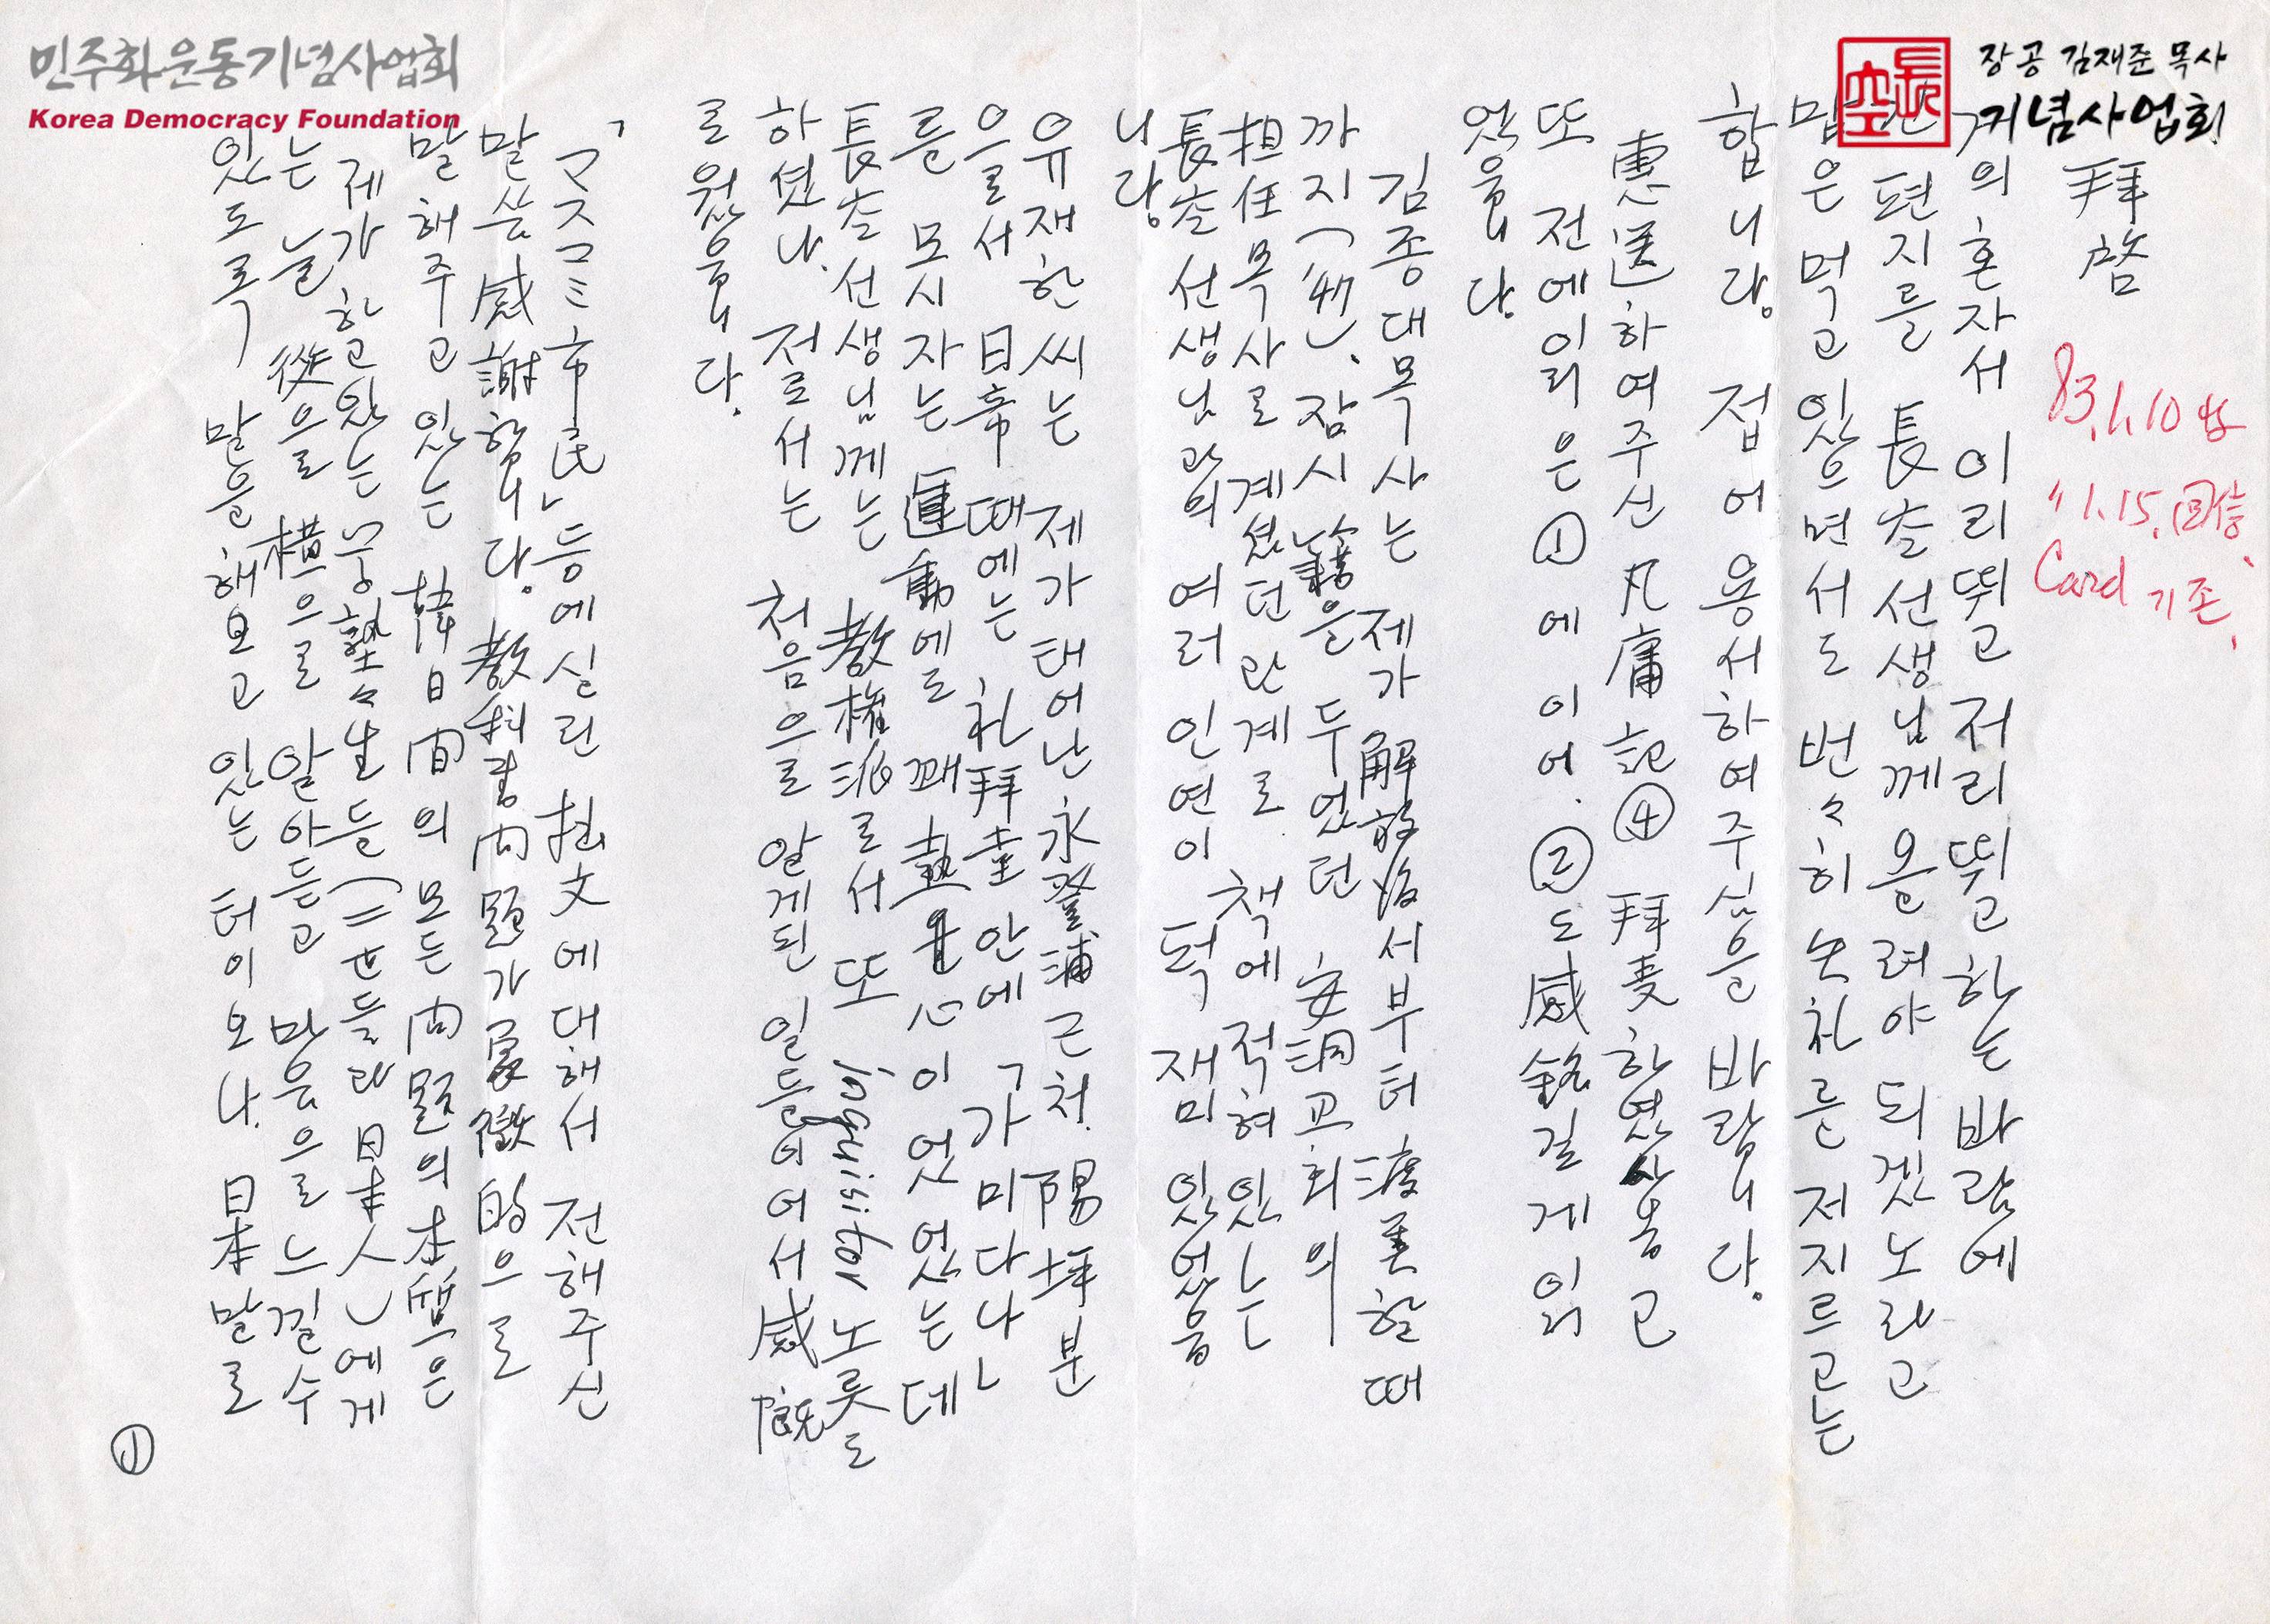 민주화운동기념사업회
Korea Democracy Foundation
長空
장공 김재준 목사
기념사업회
83.1.10
〃1.15. 回信
Card 기존.
拜啓
거의 혼자서 이리뛰고 저리뛰고 하는 바람에
편지를 長空선생님께 올려야 되겠노라고
맘은 먹고 있으면서도 번々히 失礼를 저지르고는
합니다. 접어 용서하여 주심을 바랍니다.
惠送하여주신 凡庸記④ 拜受하였사옵고
또 전에 이미 은 ①에 이어. ②도 感銘깊게 읽
었읍니다.
김종대목사는 제가 解放後서부터 渡美할때
까지(’47). 잠시 籍을 두었던 安洞교회의
担任목사로 계셨던 관계로 책에 적혀있는
長空선생님과의 여러 인연이 퍽 재미있었읍
니다.
유재한씨는 제가 태어난 永登浦근처. 陽坪분
을로서 日帝때에는 「礼拜堂안에 가미다나」
를 모시자는 運動에도 꽤 熱心이었었는데
長空선생님께는 教権派로서 또 inquisitor 노릇도
하셨나. 저로서는 처음으로 알게된 일들이어서 感慨
로웠읍니다.
「マスコミ市民」등에 실린 拙文에 대해서 전해주신
말씀 感謝합니다. 教科書問題가 象徵的으로
말해주고 있는 韓日間의 모든 問題의 本質은
제가 하고 있는 塾々生들(二世들과 日本人)에게
는 늘 從으로 橫으로 알아듣고 마음으로 느낄수
있도록 말을 해보고 있는 터이오나. 日本말로
①